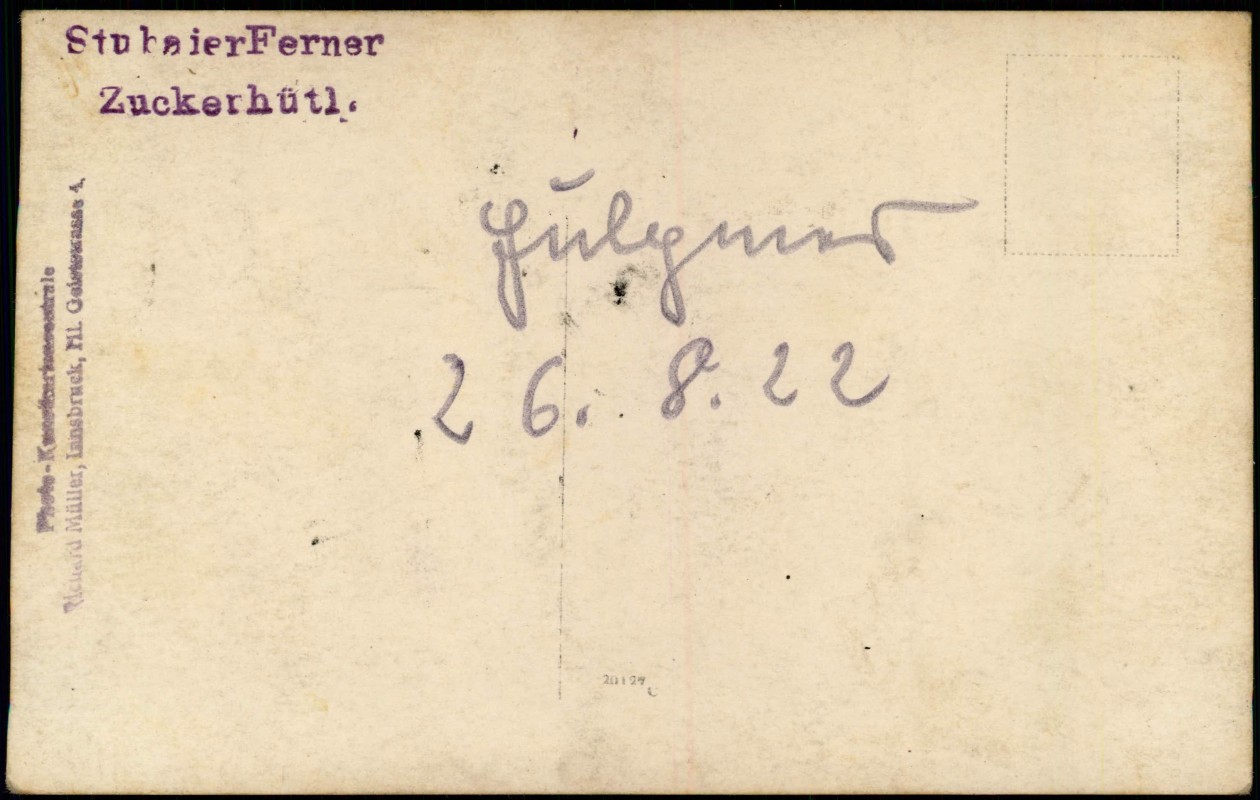 Stubaier Ferner
Zuckerhütl.
Photo-Kunstkartenzentrale
Richard Müller, Innsbruck, Hl. Geiststrasse 4.
Fulpmes
26. 8. 22